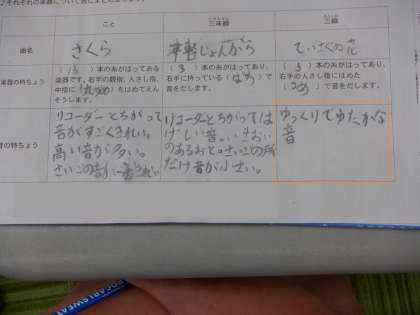 それぞれの楽器について
こと
三味線
三線
曲名
さくら
津軽じょんがら
ていさぐの花
楽器の特ちょう
(13)本の糸がはってある
楽器です。右手の親指、人さし指、
中指に(つめ)をはめてえん
そうします。
(3)本の糸がはってあり、
右手に持っている(ばち)で
音をだします。
(3)本の糸がはってあり、
右手の人さし指にはめた
(つめ)で音をだします。
音の特ちょう
リコーダーとちがって
音がすごくきれい。
高い音が多い。
さいごの音が一番
リコーダーとちがっては
げしい音。
のあるおと。さいごの所
だけ音が小さい。
ゆっくりでゆたかな
音
POCARI SWEAT